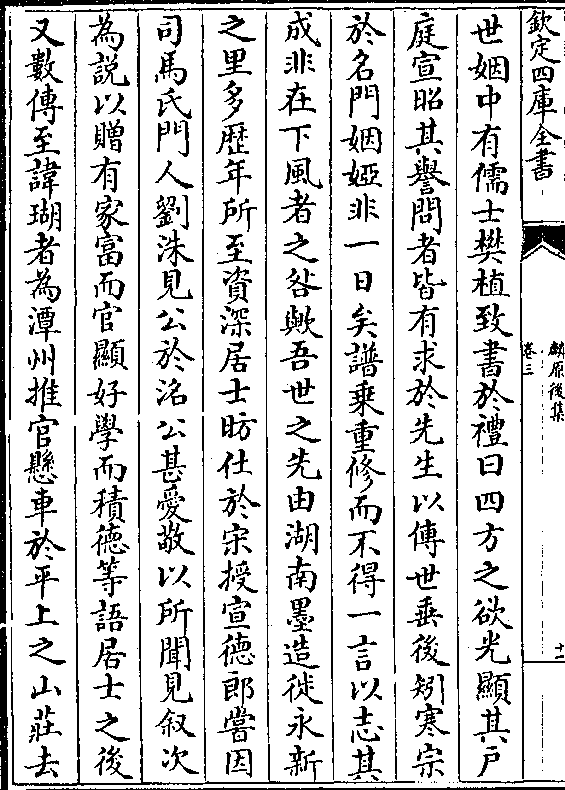 欽定四庫全書
麟原後集
卷三
十一
世姻中有儒士樊植致書於禮曰四方之欲光顯其戸
庭宣昭其譽問者皆有求於先生以傳世垂後矧寒宗
於名門姻婭非一日矣譜乗重修而不得一言以志其
成非在下風者之咎歟吾世之先由湖南墨造徙永新
之里多歴年所至資深居士昉仕於宋授宣德郎嘗因
司馬氏門人劉洙見公於洺公甚愛敬以所聞見叙次
為説以贈有家富而官顯好學而積德等語居士之後
又數傳至諱瑚者為潭州推官懸車於平上之山莊去